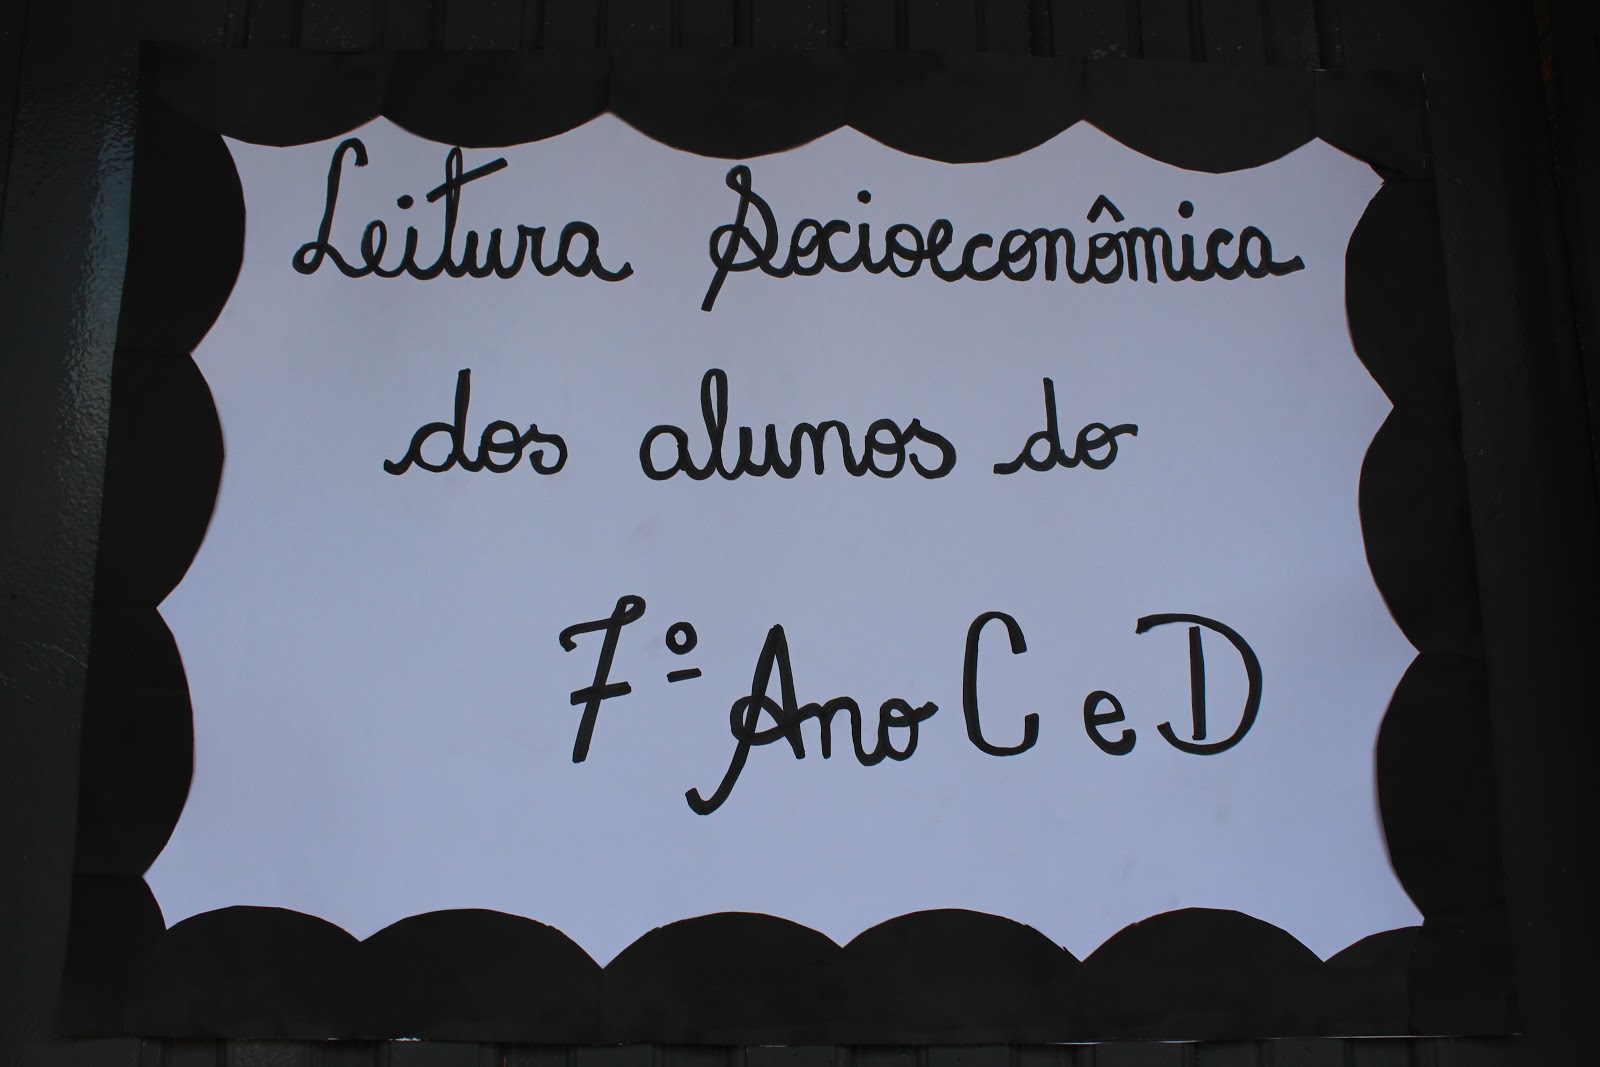 Leitura Socioeconômica
dos alunos do
7º Ano C e D